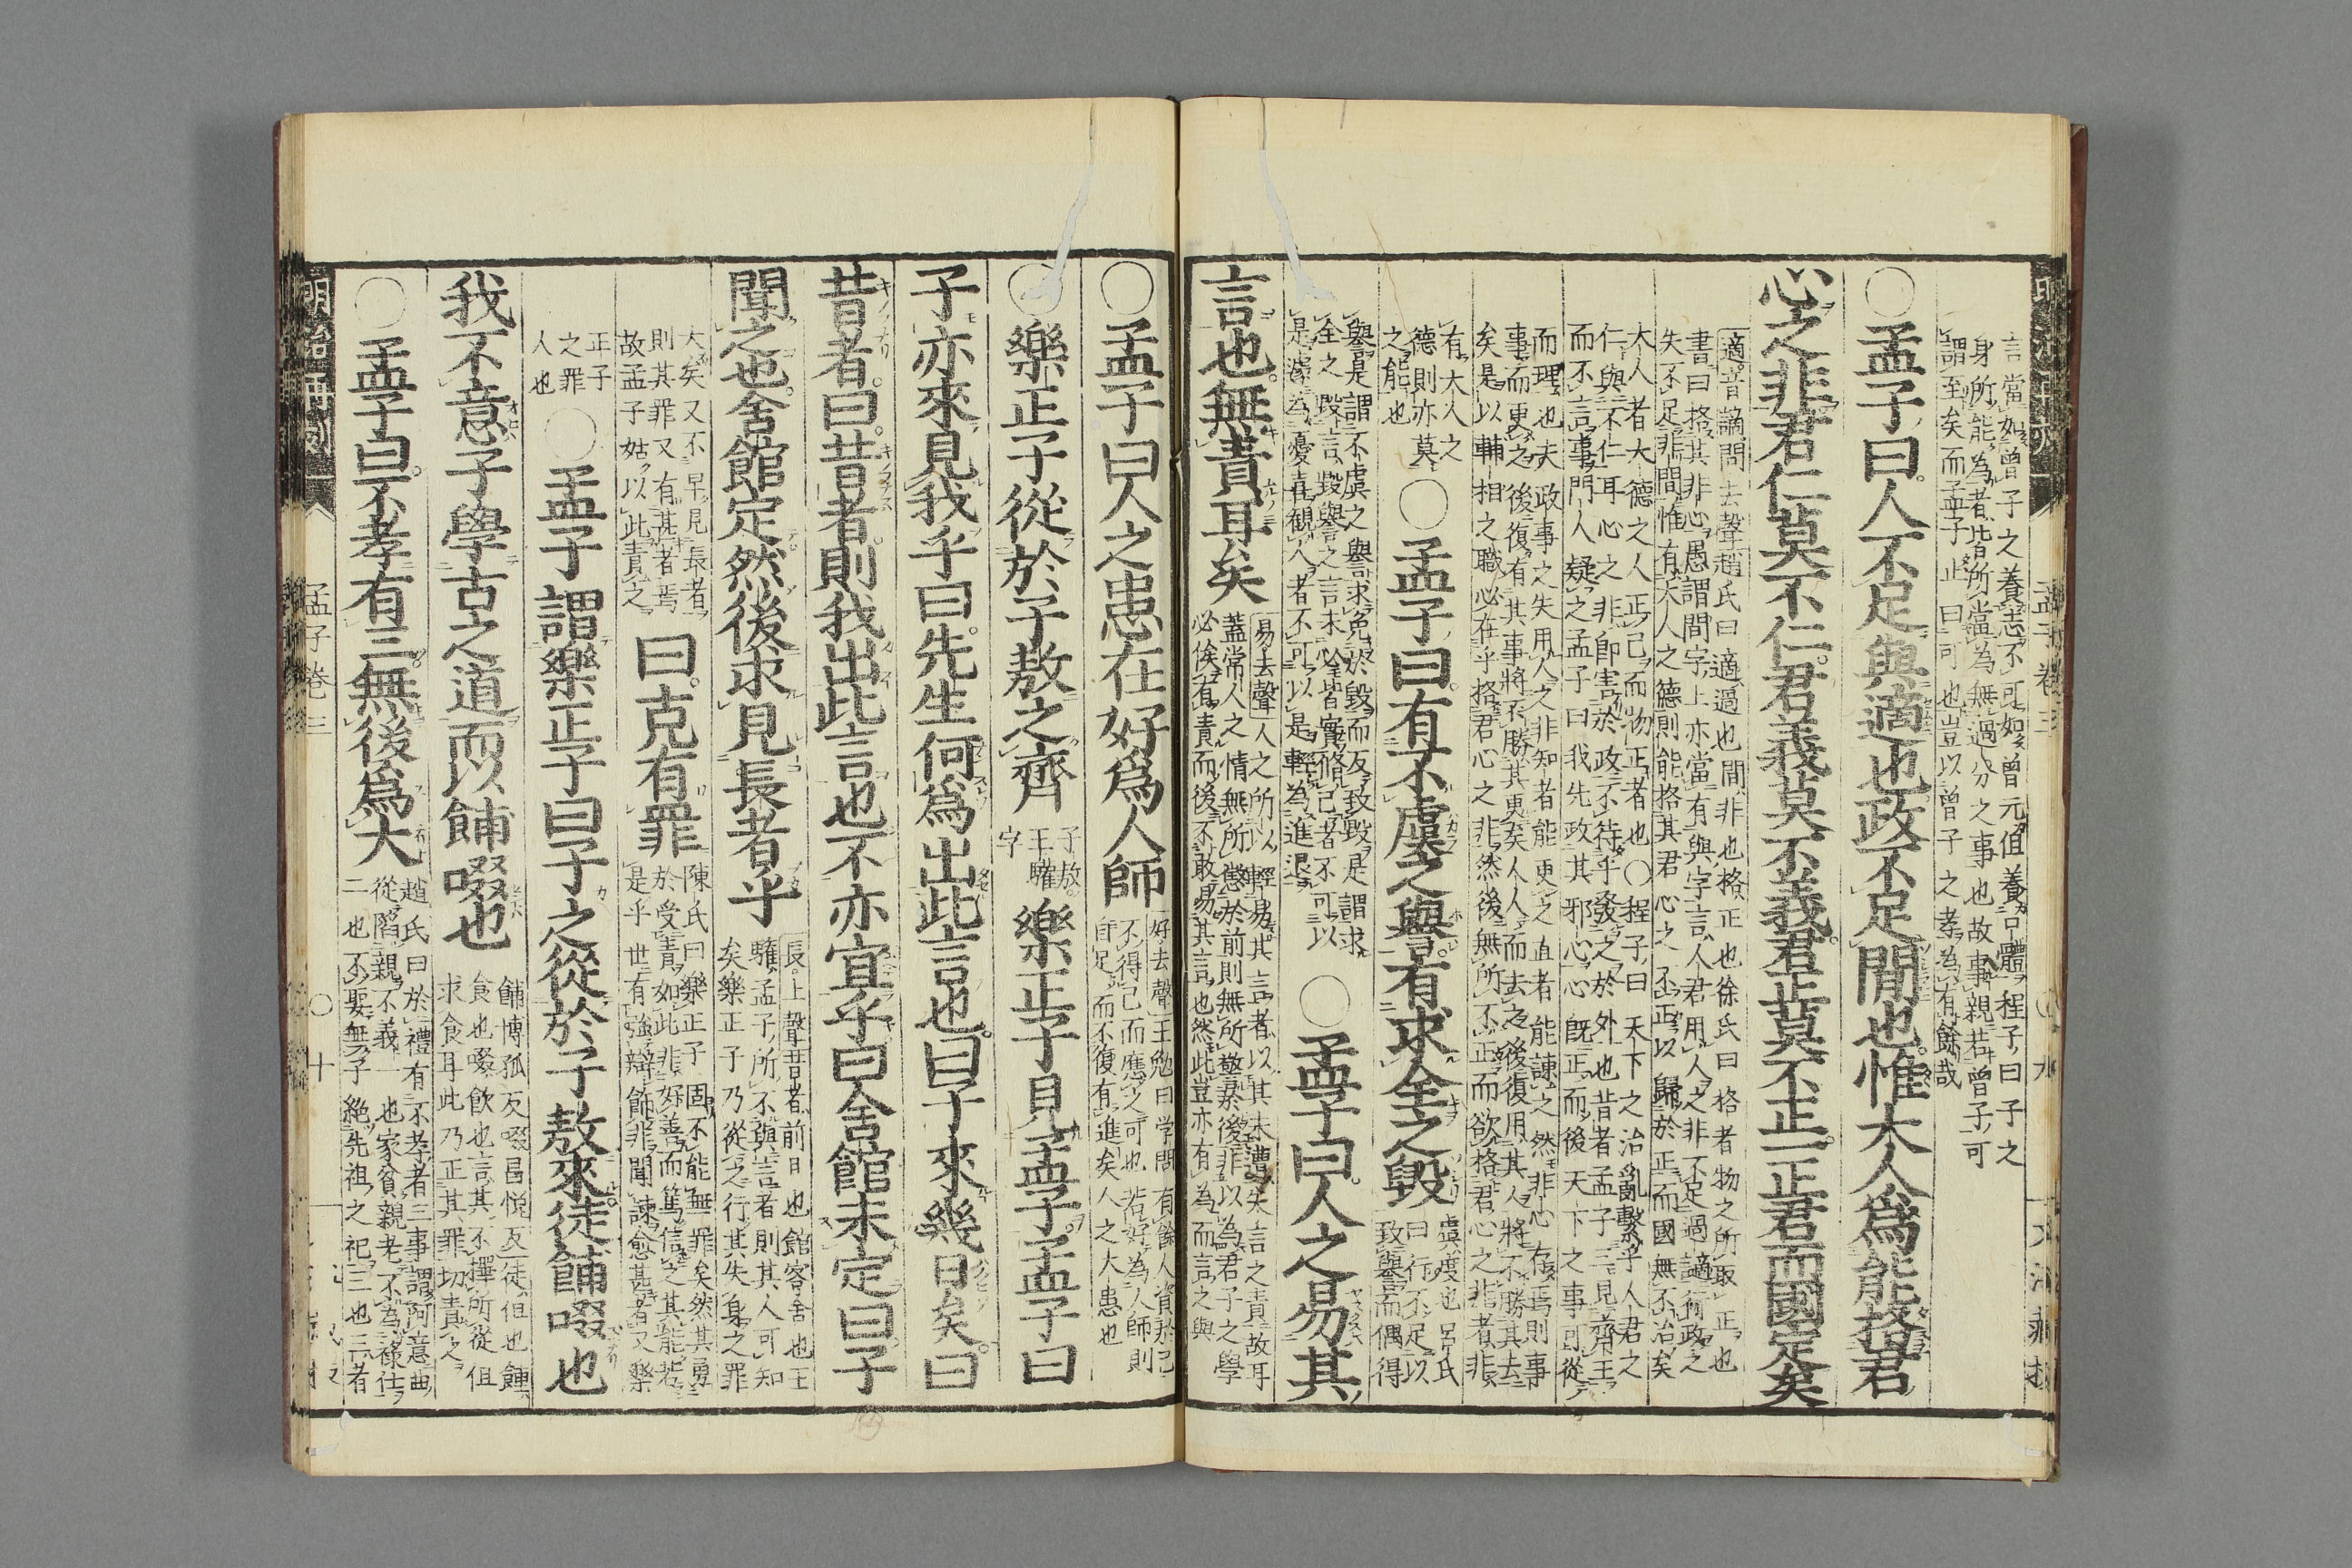 言當如曾子之養志不可如曾元但養口體程子曰子之
身所能為者皆所當為無過分之事也故事親若曾子可
謂至矣而孟子止曰可也豈以曾子之孝為有餘哉
○孟子曰人不足與適也政不足閒也惟大人爲能格君
心之非君仁莫不仁君義莫不義君正莫不正一正君而國定矣
適音謫間去聲趙氏曰適過也間非也格正也徐氏曰格者物之所取正也
書曰格其非心愚謂間字上亦當有與字言人君用人之非不足過謫行政之
失不足非間惟有大人之德則能格其君心之不正以歸於正而國無不治矣
大人者大德之人正己而物正者也○程子曰天下之治亂繫乎人君之
仁與不仁耳心之非即害於政不待乎發之於外也昔者孟子三見齊王
而不言事門人疑之孟子曰我先攻其邪心心既正而後天下之事可從
而理也夫政事之失用人之非知者能更之直者能諫之然非心存焉則事
事而更之後復有其事將不勝其更矣人人而去之後復用其人將不勝其去
矣是以輔相之職必在乎格君心之非然後無所不正而欲格君心之非者非
有大人之
德則亦莫
之能也
○孟子曰有不虞之譽有求全之毀
虞度也呂氏
曰行不足以
致譽而偶得
譽是謂不虞之譽求免於毀而反致毀是謂求
全之毀言毀譽之言未必皆實脩己者不可以
是遽為憂喜觀人者不可以是輕為進退
○孟子曰人之易其
言也無責耳矣
易去聲人之所以輕易其言者以其未遭失言之責故耳
蓋常人之情無所懲於前則無所警於後非以為君子之學
必俟有責而後不敢易其言也然此豈亦有為而言之與
○孟子曰人之患在好爲人師
好去聲王勉曰學問有餘人資於己
不得已而應之可也若好為人師則
自足而不復有進矣人之大患也
○樂正子從於子敖之齊
子敖
王驩
字
樂正子見孟子孟子曰
子亦來見我乎曰先生何爲出此言也曰子來幾日矣曰
昔者曰昔者則我出此言也不亦宜乎曰舍館未定曰子
聞之也舍館定然後求見長者乎
長上聲昔者前日也館客舍也王
驩孟子所不與言者則其人可知
矣樂正子乃從之行其失身之罪
大矣又不早見長者
則其罪又有甚者焉
故孟子姑以此責之
曰克有罪
陳氏曰樂正子固不能無罪矣然其勇
於受責如此非好善而篤信之其能若
是乎世有強辯飾非聞諫愈甚者又樂
正子
之罪
人也
○孟子謂樂正子曰子之從於子敖來徒餔啜也
我不意子學古之道而以餔啜也
餔博孤反啜昌悅反徒但也餔
食也啜飲也言其不擇所從但
求食耳此乃正其罪切責之
○孟子曰不孝有三無後爲大
趙氏曰於禮有不孝者三事謂阿意曲
從陷親不義一也家貧親老不為祿仕
二也不娶無子絕先祖之祀三也三者
孟子卷三
○十